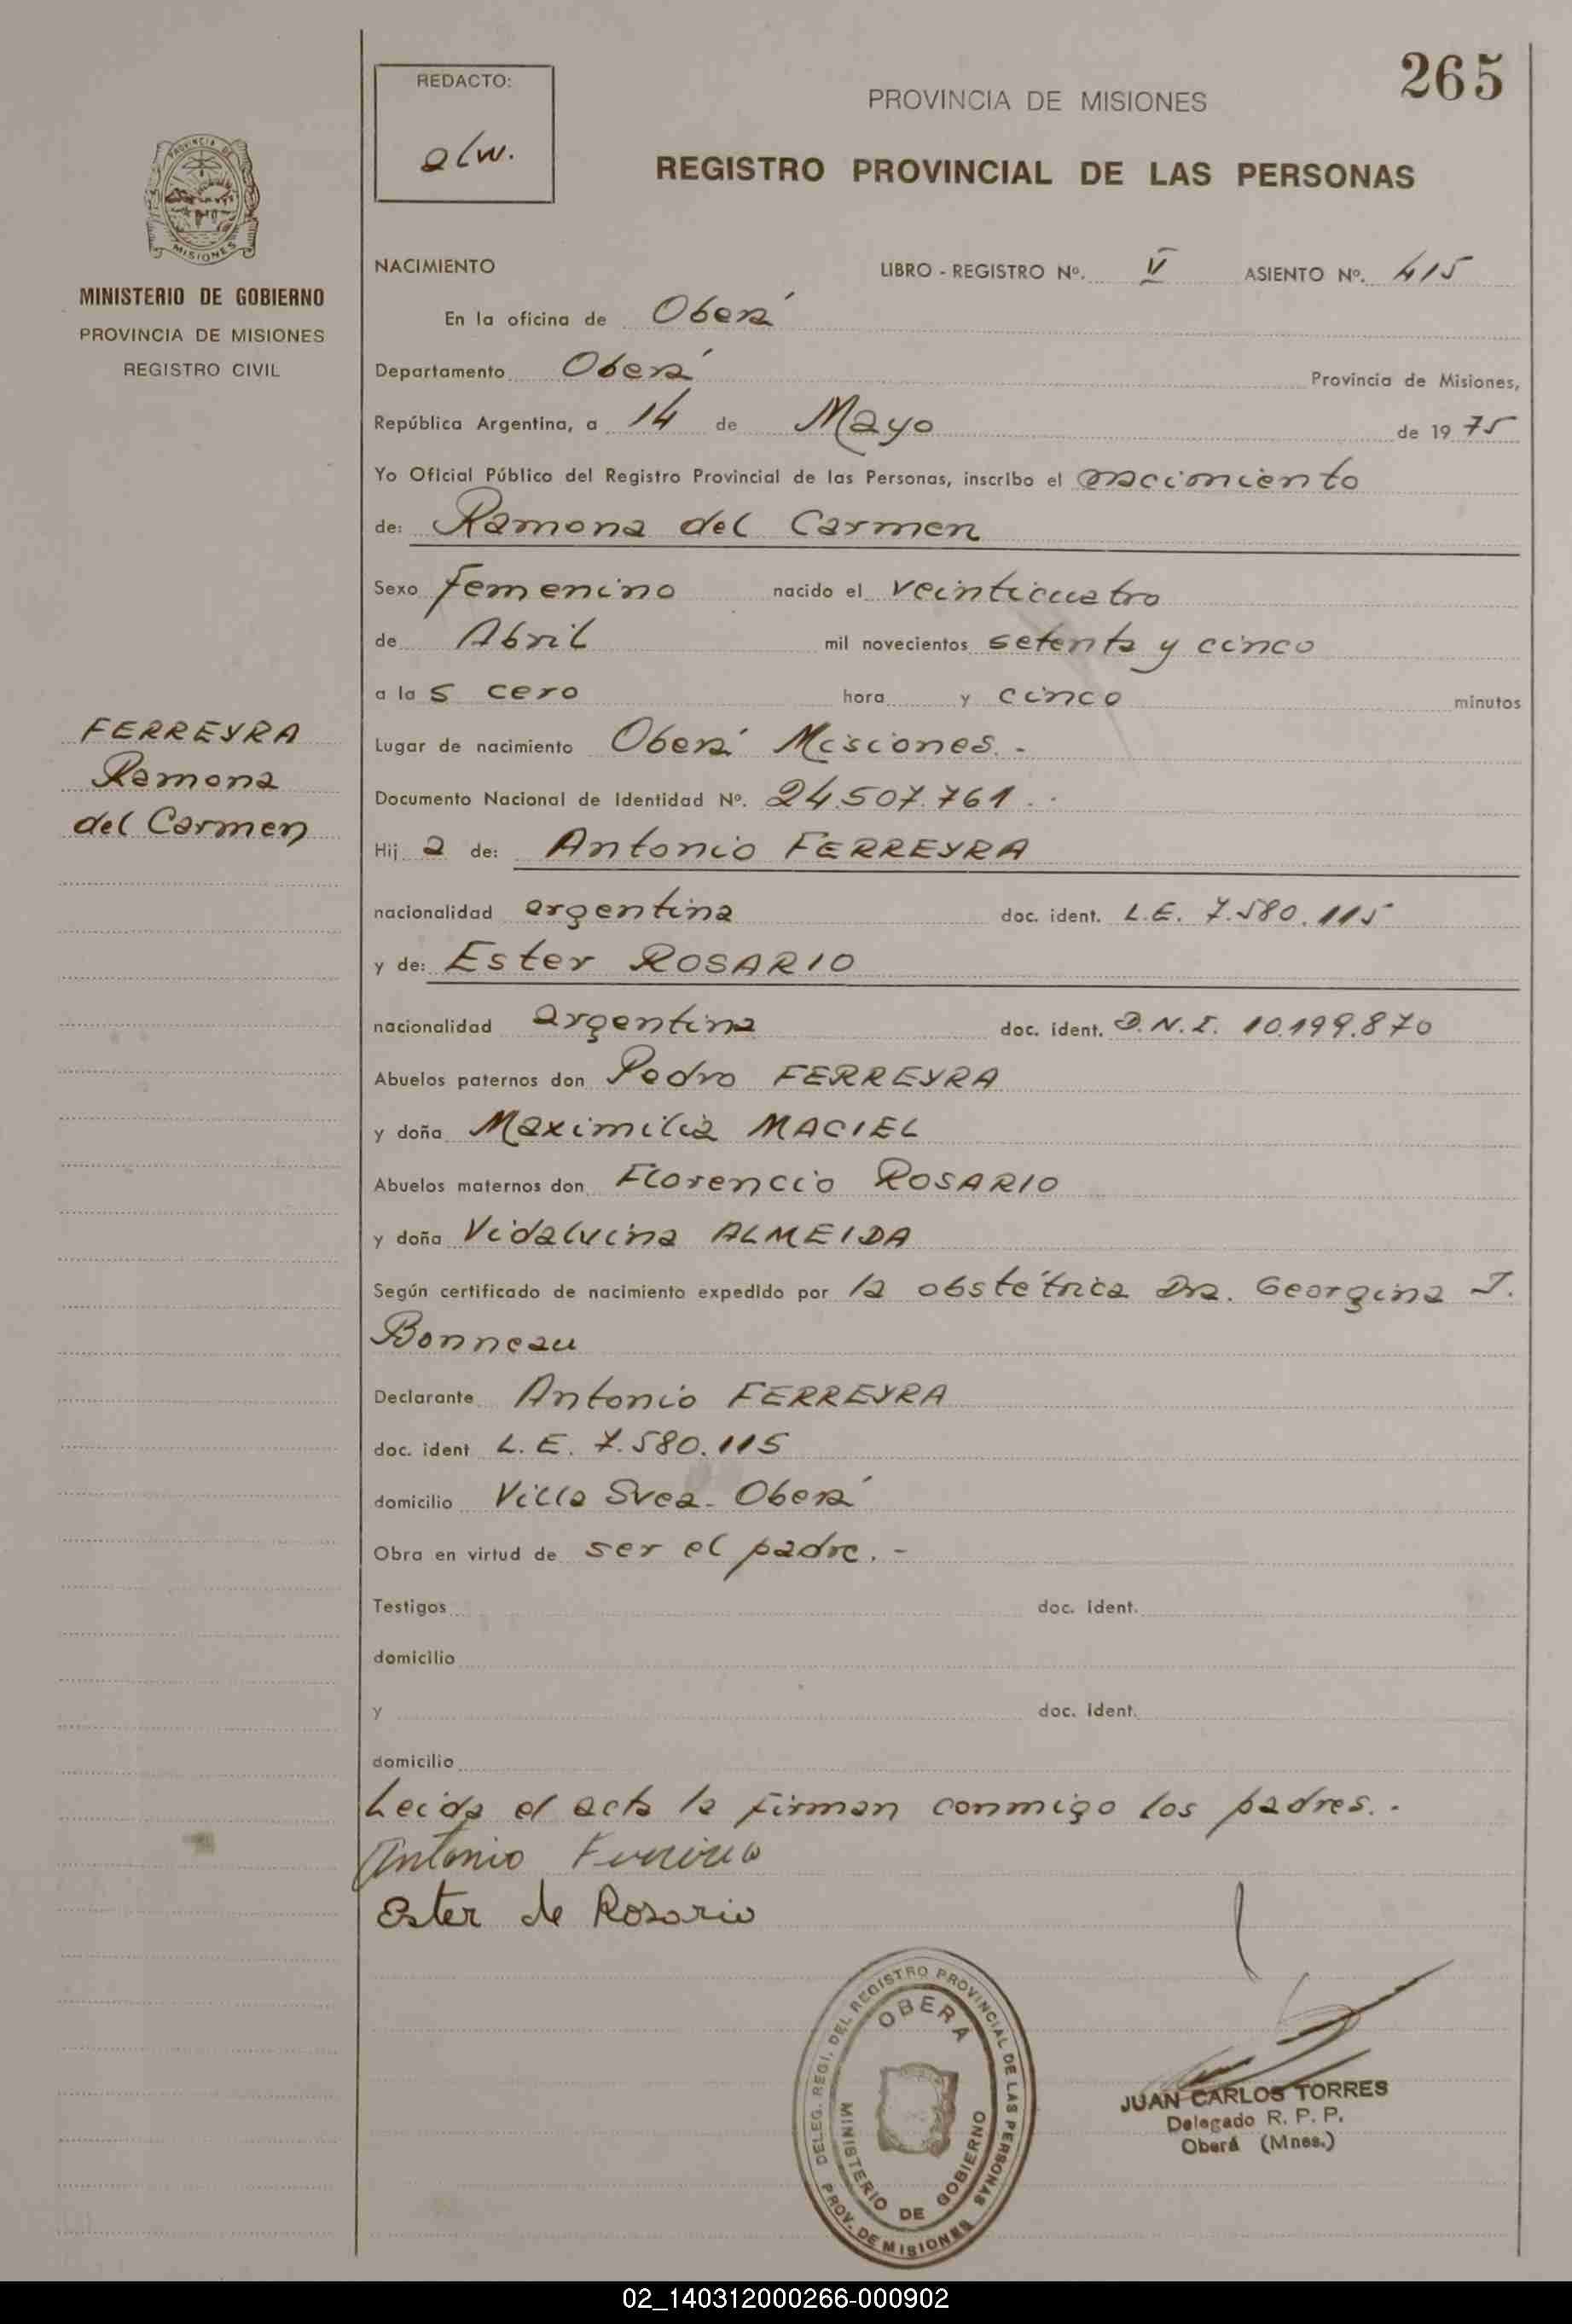 265
REDACTO:
alw.
PROVINCIA DE MISIONES
REGISTRO PROVINCIAL DE LAS PERSONAS
PROVINCIA DE
MISIONES
MINISTERIO DE GOBIERNO
PROVINCIA DE MISIONES
REGISTRO CIVIL
NACIMIENTO LIBRO - REGISTRO Nº. V ASIENTO Nº. 415
En la oficina de Oberá
Departamento Oberá Provincia de Misiones,
República Argentina, a 14 de Mayo de 1975
Yo Oficial Público del Registro Provincial de las Personas, inscribo el nacimiento
de: Ramona del Carmen
Sexo femenino nacido el veinticuatro
de Abril mil novecientos setenta y cinco
a la s cero hora y cinco minutos
FERREYRA
Ramona
del Carmen
Lugar de nacimiento Oberá Misiones. -
Documento Nacional de Identidad Nº. 24.507.761. -
Hij a de: Antonio FERREYRA
nacionalidad argentina doc. ident. L.E. 7.580.115
y de: Ester ROSARIO
nacionalidad argentina doc. ident. D.N.I. 10.199.870
Abuelos paternos don Pedro FERREYRA
y doña Maximilia MACIEL
Abuelos maternos don Florencio ROSARIO
y doña Vidalvina ALMEIDA
Según certificado de nacimiento expedido por la obstétrica Dra. Georgina J.
Bonneau
Declarante Antonio FERREYRA
doc. ident L. E. 7.580.115
domicilio Villa Svea - Oberá
Obra en virtud de ser el padre. -
Testigos doc. ident.
domicilio
y doc. ident.
domicilio
Leida el acta la firman conmigo los padres. -
Antonio
Ester de Rosario
DELEG. REGI. DEL REGISTRO PROVINCIAL DE LAS PERSONAS
OBERA
MINISTERIO DE GOBIERNO
PROV. DE MISIONES
JUAN CARLOS TORRES
Delegado R. P. P.
Oberá (Mnes.)
02_140312000266-000902